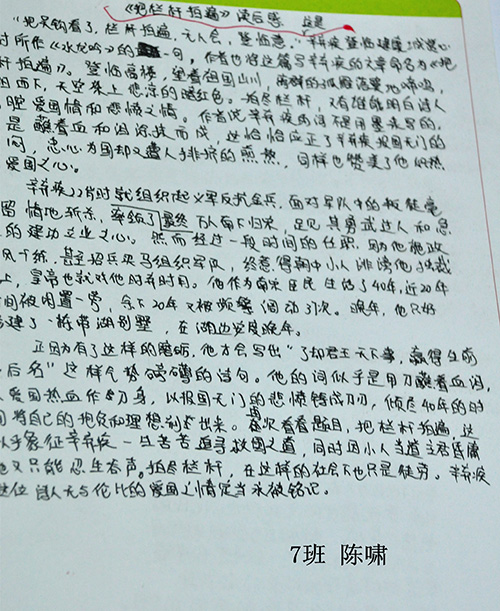 《把栏杆拍遍》读后感
"把吴钩看了，栏杆拍遍，无人会，登临意。"辛弃疾登临建康
时所作《水龙吟》的一句，作者也将这篇写辛弃疾的文章命名为《把
杆拍遍》。登临高楼，望着祖国山川，
西下，天空染上悲凉的暗红色。拍尽栏杆，又有谁能明白诗人
腔爱国情和悲愤之情。作者说辛弃疾的词不是用墨来写的，
是蘸着血和泪涂抹而成，这恰恰应正了辛弃疾报国无门的
闷，忠心为国却又遭人排挤的煎熬，同样也赞美了他炽热
爱国之心。
辛弃疾22岁时就组织起义军反抗金兵，面对军队中的叛徒毫
留情地斩杀，率领了最终万人南下归宋，足见其勇武过人和急
的建功立业之心。然而经过一段时间的任职，因为他施政
风干练，甚至招兵买马组织军队，终惹得朝中小人诽谤他
上，皇帝也就对他时弃时用。他作为南宋臣民生活了40年，近20年
间被闲置一旁，余下20年又被频繁调动37次。晚年，他只好
建了一栋带湖别墅，在湖边安度晚年。
正因为有了这样的磨砺，他才会写出"了却君王天下事，赢得生前
后名"这样气势磅礴的诗句。他的词似乎是用刀蘸着血泪，
爱国热血作刀身，以报国无门的悲愤铸成刀刃，倾尽40年的时
将自己的抱负和理想刻出来。再次看看题目，把栏杆拍遍，这
乎象征辛弃疾一生苦苦追寻救国之道，同时因小人当道主君昏庸
又只能忍气吞声。拍尽栏杆，在这样的社会下也只是徒劳。辛弃疾
这位词人无与伦比的爱国之情定当永被铭记。
7班 陈啸